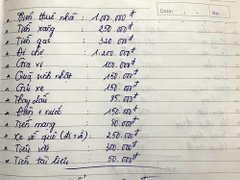 * Tiền thuê nhà : 1.000.000đ
* Tiền xăng : 250.000đ
* Tiền quà : 320.000đ
* Đi chợ : 1.200.000đ
* Gia vị : 100.000đ
* Quà sinh nhật : 150.000đ
* Gửi xe : 150.000đ
* Thay dầu : 85.000đ
* Điện + nước : 150.000đ
* Tiền mạng : 80.000đ
* Xe về quê (đi + về) : 250.000đ
* Tiêu vặt : 300.000đ
* Tiền tài liệu : 50.000đ
Date:
No.